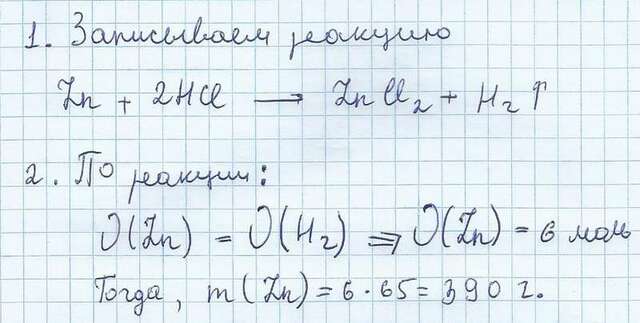 1. Записываем реакцию
Zn + 2HCl → ZnCl₂ + H₂↑
2. По реакции:
ν(Zn) = ν(H₂) ⇒ ν(Zn) = 6 моль
Тогда, m(Zn) = 6·65 = 390 г.